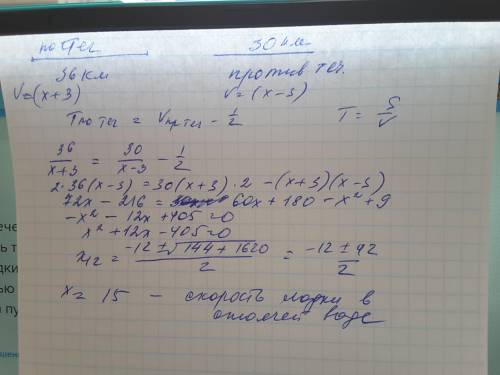 по теч   30 км
36 км   против теч.
V=(x+3)   V=(x-3)
T по теч = V пр теч - 1/2   T = S/V
36/(x+3) = 30/(x-3) - 1/2
2·36(x-3) = 30(x+3)·2 - (x+3)(x-3)
72x - 216 = 60x + 180 - x² + 9
-x² - 12x + 405 = 0
x² + 12x - 405 = 0
x12 = (-12 ± √(144 + 1620))/2 = (-12 ± 42)/2
x = 15 - скорость лодки в
стоячей воде